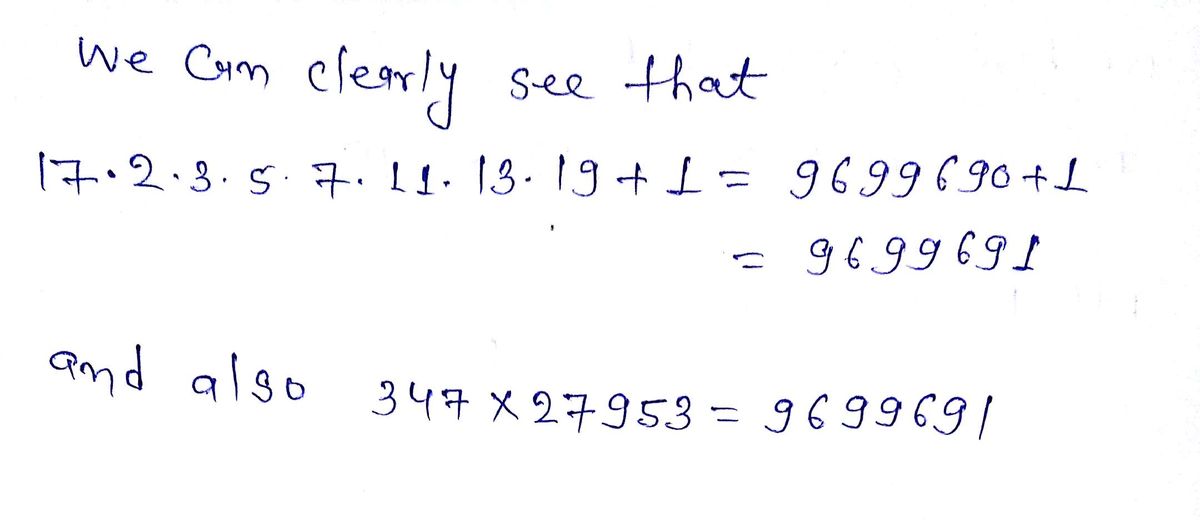 We Can clearly see that
17·2·3·5·7·11·13·19+1 = 9699690+1
= 9699691
and also 347×27953 = 9699691